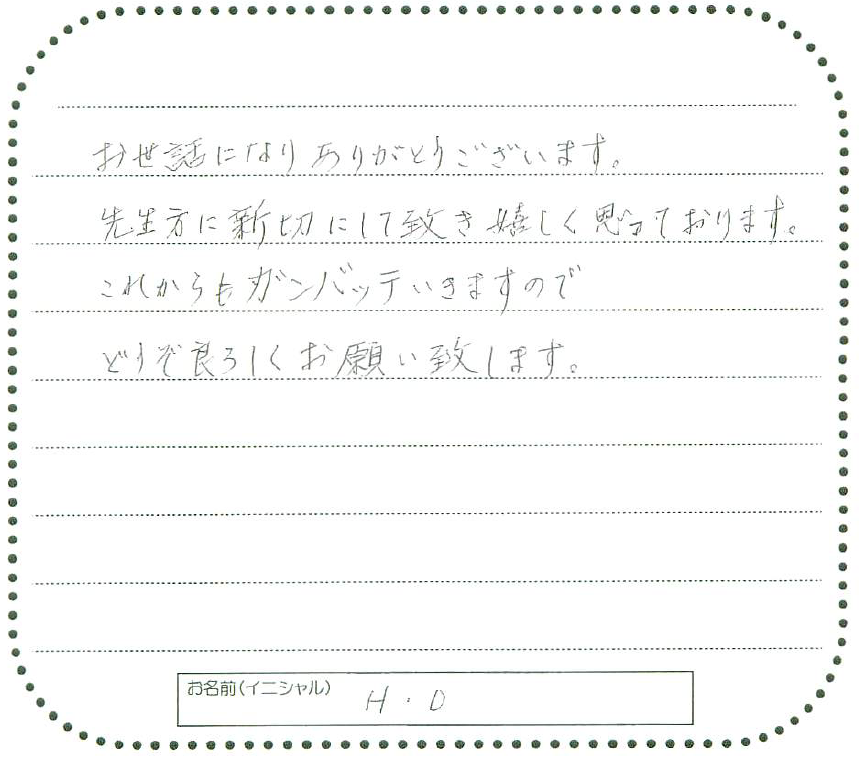 お世話になりありがとうございます。
先生方に新切にして致き嬉しく思っております。
これからもガンバッテいきますので
どうぞ良ろしくお願い致します。
お名前(イニシャル) H.O